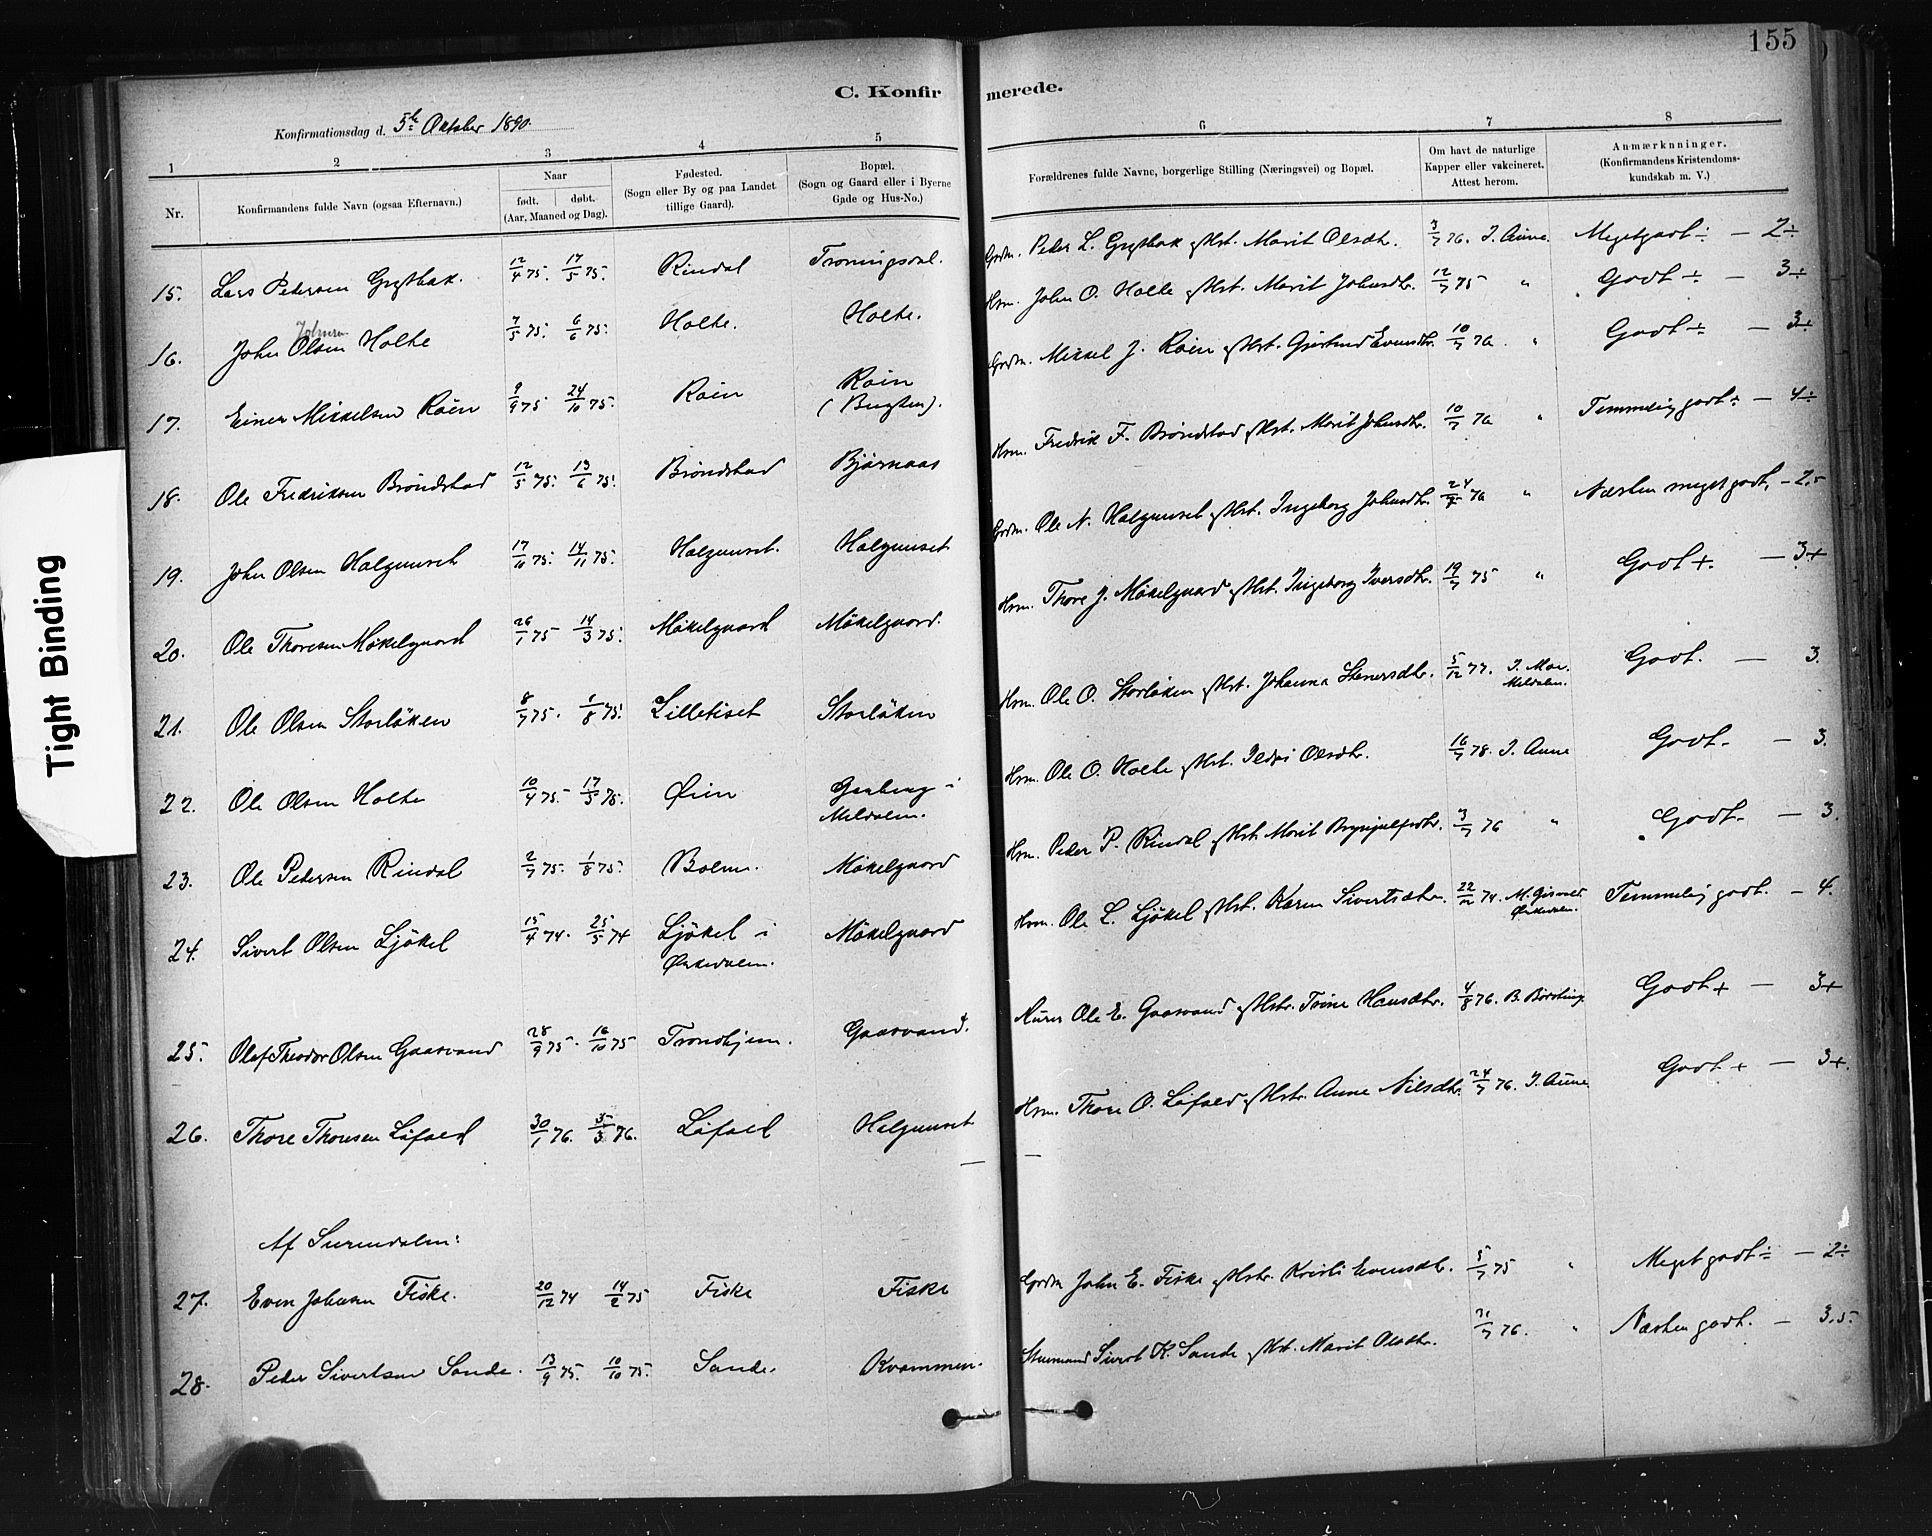 155
C. Konfir merede.
Konfirmationsdag d. 5te Oktober 1890.
1 2 3 4 5 6 7 8
Nr.
Konfirmandens fulde Navn (ogsaa Efternavn).
Naar
født. døbt.
(Aar, Maaned og Dag).
Fødested.
(Sogn eller By og paa Landet
tillige Gaard).
Bopæl.
(Sogn og Gaard eller i Byerne
Gade og Hus-No.)
Forældrenes fulde Navne, borgerlige Stilling (Næringsvei) og Bopæl.
Om havt de naturlige
Kopper eller vakcineret.
Attest herom.
Anmærkninger.
(Konfirmandens Kristendoms-
kundskab m. V.)
15. Lars Pedersen Grytbak. 12/4 75. 17/5 75. Rindal Troningsdal. Grdm. Peder L. Grytbak og Hst. Marit Olsdtr. 3/7 76. J. Aune. Megetgodt ÷ — 2÷
Johnsen
16. John Olsen Holte 7/5 75. 6/6 75. Holte. Holte. Hsm. John O. Holte og Hst. Marit Johnsdtr. 12/7 75 " Godt ÷ — 3÷
17. Einer Mikkelsen Røen 9/9 75 24/10 75. Røen Røen
(Bugten). Grdm. Mikkel J. Røen og Hst. Gjertrud Evensdtr. 10/7 76. " Godt ÷ — 3÷
18. Ole Fredriksen Bröndstad 12/5 75. 13/6 75. Bröndstad Bjørnaas Hsm. Fredrik F. Bröndstad og Hst. Marit Johnsdtr. 10/7 76 " Temmelig godt ÷ — 4÷
19. John Olsen Halgunset 17/10 75. 14/11 75. Halgunset. Halgunset Grdm. Ole N. Halgunset og Hst. Ingeborg Johnsdtr. 24/7 76 " Næsten meget godt. — 2,5
20. Ole Thoresen Møkelgaard 26/1 75 14/3 75. Møkelgaard Møkelgaard. Hsm. Thore J. Møkelgaard og Hst. Ingeborg Iversdtr. 19/7 75 " Godt +. — 3+
21. Ole Olsen Storløken 8/7 75. 1/8 75. Lilletiset Storløken Hsm. Ole O. Storløken og Hst. Johanna Stenersdtr. 5/12 77. J. Moe.
Meldalen. Godt. — 3.
22. Ole Olsen Holte 10/4 75. 17/5 75. Øien i
Meldalen. Hsm. Ole O. Holte og Hst. Ildri Olsdtr. 16/7 78. J. Aune Godt. — 3.
23. Ole Pedersen Rindal 2/7 75. 1/8 75. Bolme. Møkelgaard Hsm. Peder P. Rindal og Hst. Marit Brynjulfsdtr. 3/7 76 " Godt. — 3.
24. Sivert Olsen Ljøkel 15/4 74. 25/5 74 Ljøkel i
Ørkedalen. Møkelgaard Hsm. Ole L. Ljøkel og Hst. Karen Sivertsdtr. 22/12 74. M.
Ørkedalen. Temmelig godt. — 4.
25. Olaf Theodor Olsen Gaasvand 28/9 75. 16/10 75 Trondhjem. Gaasvand. Murer Ole E. Gaasvand og Hstr. Trine Hansdtr. 4/8 76. B. Godt + — 3+
26. Thore Thoresen Løfald 30/1 76. 5/3 76. Løfald Halgunset Hsm. Thore O. Løfald og Hstr. Anne Nilsdtr. 24/7 76. J. Aune Godt + — 3+.
Af Surendalen:
27. Even Johnsen Fiske. 20/12 74 14/2 75 Fiske Fiske Grdm John E. Fiske og Hstr. Kristi Evensdtr. 5/7 75 " Meget godt ÷ — 2÷
28. Peder Sivertsen Sande. 13/9 75. 10/10 75. Sande. Kvammen. Sivert K. Sande og Hst. Marit Olsdtr. 31/7 76. " Næsten godt. — 3,5.
Tight Binding